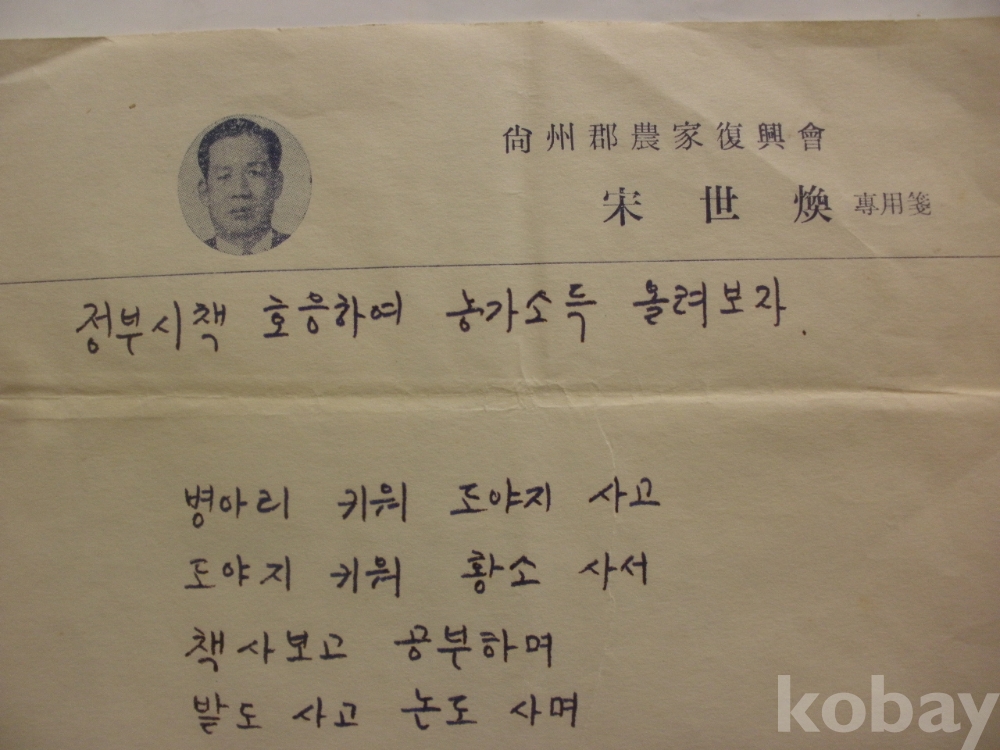 尙州郡農家復興會
宋世煥 專用箋
정부시책 호응하여 농가소득 올려보자.
병아리 키워 도야지 사고
도야지 키워 황소 사서
책사보고 공부하며
밭도 사고 논도 사며
kobay